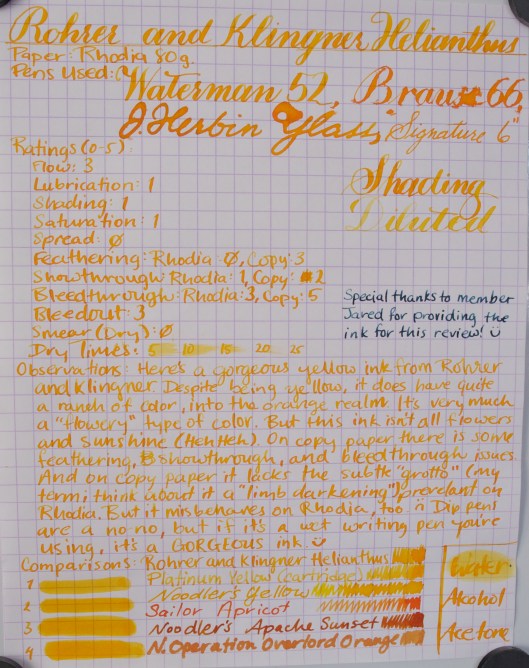 Rohrer and Klingner Helianthus
Paper: Rhodia 80g.
Pens Used:
Waterman 52, Brause 66,
J. Herbin Glass, "Signature 6"
Ratings (0-5):
Flow: 3
Lubrication: 1
Shading: 1
Saturation: 1
Spread: Ø
Feathering: Rhodia: Ø, Copy: 3
Showthrough: Rhodia: 1, Copy: 2
Bleedthrough: Rhodia: 3, Copy: 5
Bleedout: 3
Smear (Dry): Ø
Dry Times: 5 10 15 20 25
Shading
Diluted
Special thanks to member
Jared for providing the
ink for this review!
Observations: Here's a gorgeous yellow ink from Rohrer
and Klingner. Despite being yellow, it does have quite
a ranch of color, into the orange realm. It's very much
a "flowery" type of color. But this ink isn't all flowers
and sunshine (HehHeh). On copy paper there is some
feathering, showthrough, and bleedthrough issues.
And on copy paper it lacks the subtle "grotto" (my
term: think about it a "limb darkening") prevelant on
Rhodia. But it misbehaves on Rhodia, too. Dip pens
are a no-no, but if it's a wet writing pen you're
using, it's a GORGEOUS ink.
Comparisons: Rohrer and Klingner Helianthus
1 Platinum Yellow (Cartridge)
Noodler's Yellow
2 Sailor Apricot
3 Noodler's Apache Sunset
4 N. Operation Overlord Orange
Water
Alcohol
Acetone